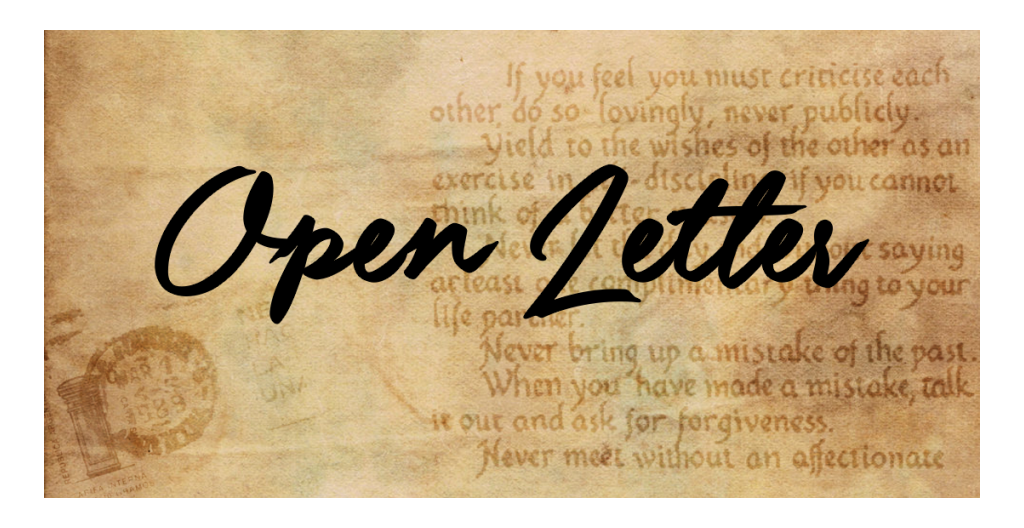 If you feel you must criticise each
other, do so lovingly, never publicly.
Yield to the wishes of the other as an
exercise in -discipline if you cannot
think of a better
Open Letter
Never let the day end without saying
at least one complimentary thing to your
life partner.
Never bring up a mistake of the past.
When you have made a mistake, talk
it out and ask for forgiveness.
Never meet without an affectionate